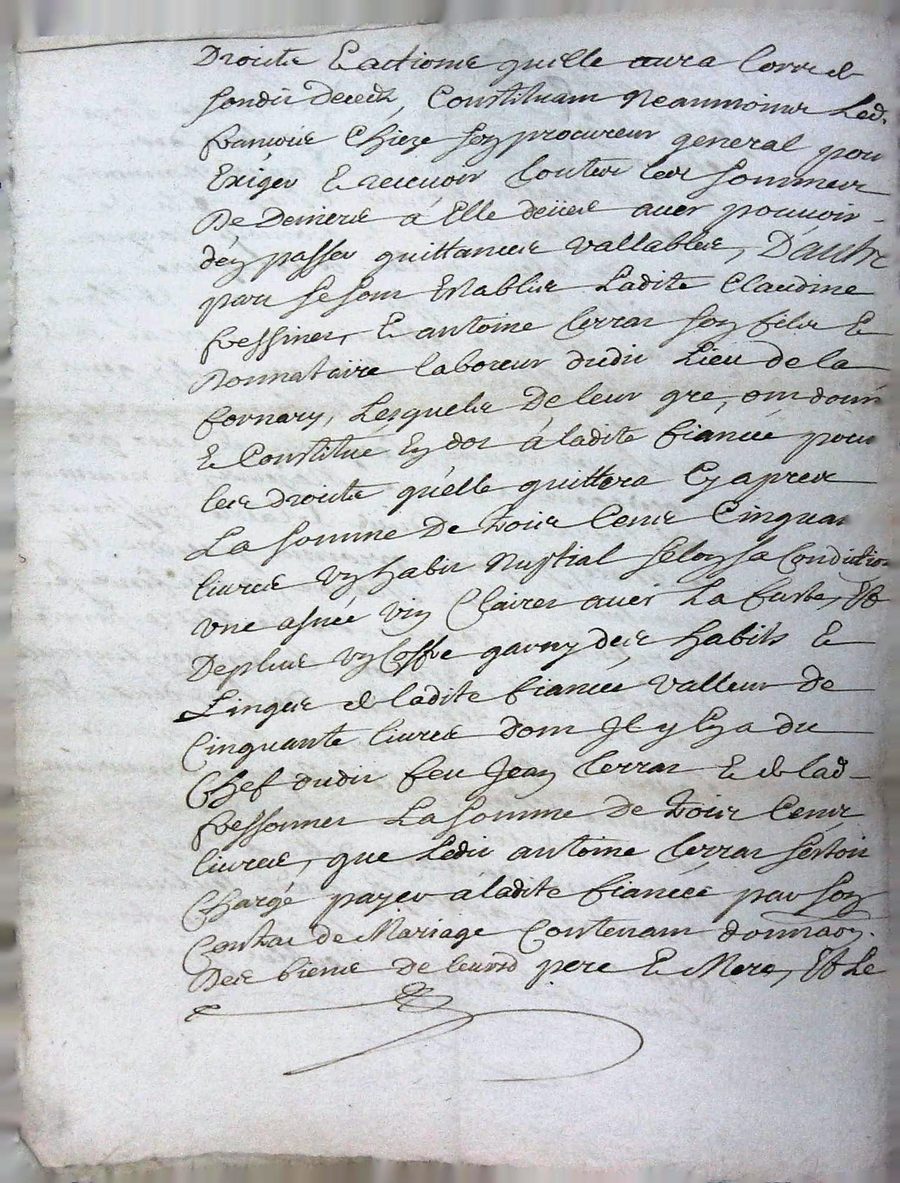 Droits & actions quelle aura lors de
sondit deces, Constituant Neanmoins Led.
françois Chieze son procureur general pour
Exiger & recevoir toutes les sommes
De Deniers a Elle deües avec pouvoir
d'en passer quittances vallables, D'autre
part se sont Establis Ladite Claudine
fressinet, & antoine terras son fils &
Donnataire laboreur dudit Lieu de la
fornary, Lesquels De leur gre, ont donné
& Constitué En dot à ladite fiancée pour
les droits qu'elle quittera Cy apres
La somme De trois Cents Cinquante
livres un habit Nuptial selon sa Condition
une asnée vin Clairet avec La fuste, Et
De plus un Coffre garny des habits &
Linges de ladite fiancée valleur de
Cinquante livres dont Il y En a du
Chef dudit feu Jean terras & de lad
fressonnet La somme De trois Cents
livres, que Ledit antoine terras sestoit
Chargé payer a ladite fiancée par son
Contrat de Mariage Contenant donnaon.
Des biens de leursd pere & Mere, Et Le